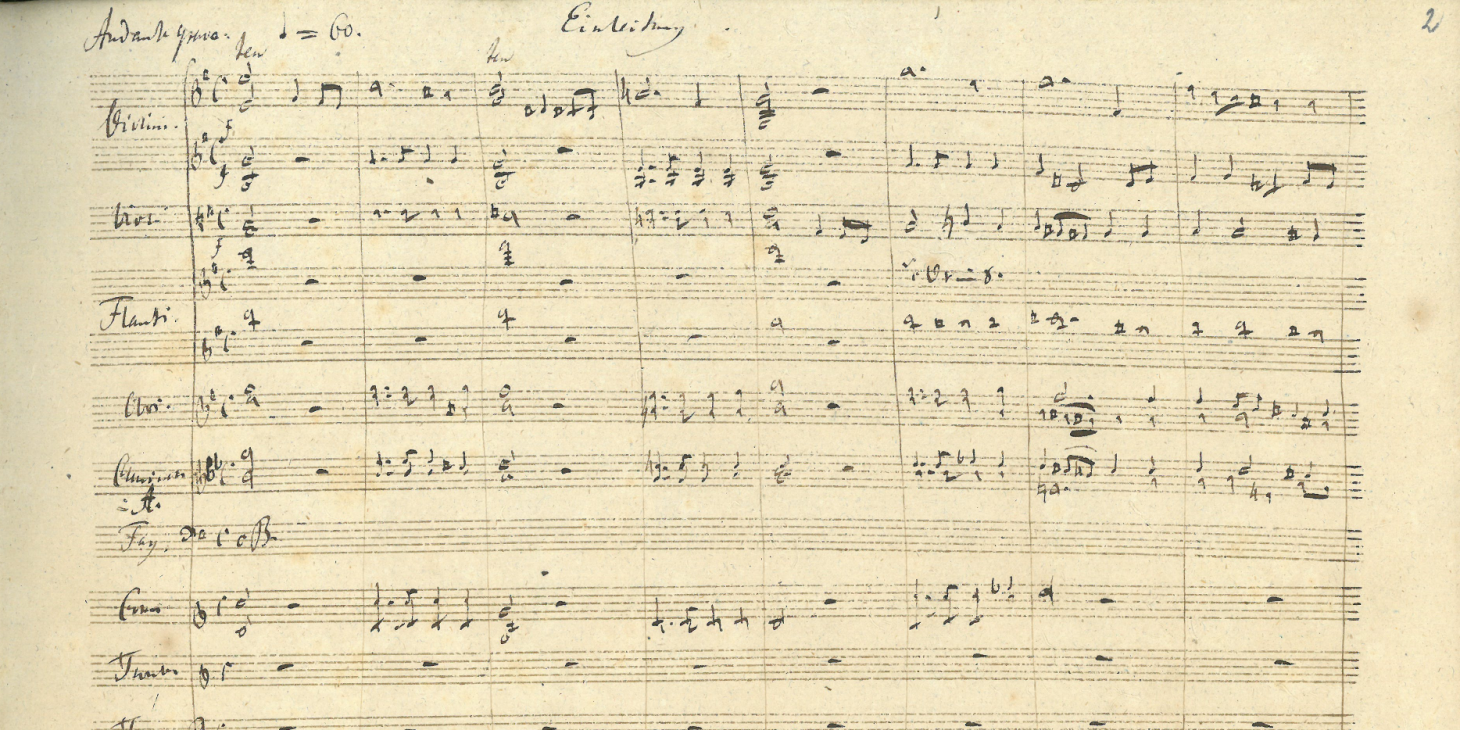 Andante grave. ♩ = 60. Einleitung. 2
ten ten
Violini.
f
f
Viol
f
Flauti.
Oboi.
Clarinetti
A.
Fag. c B
Corni